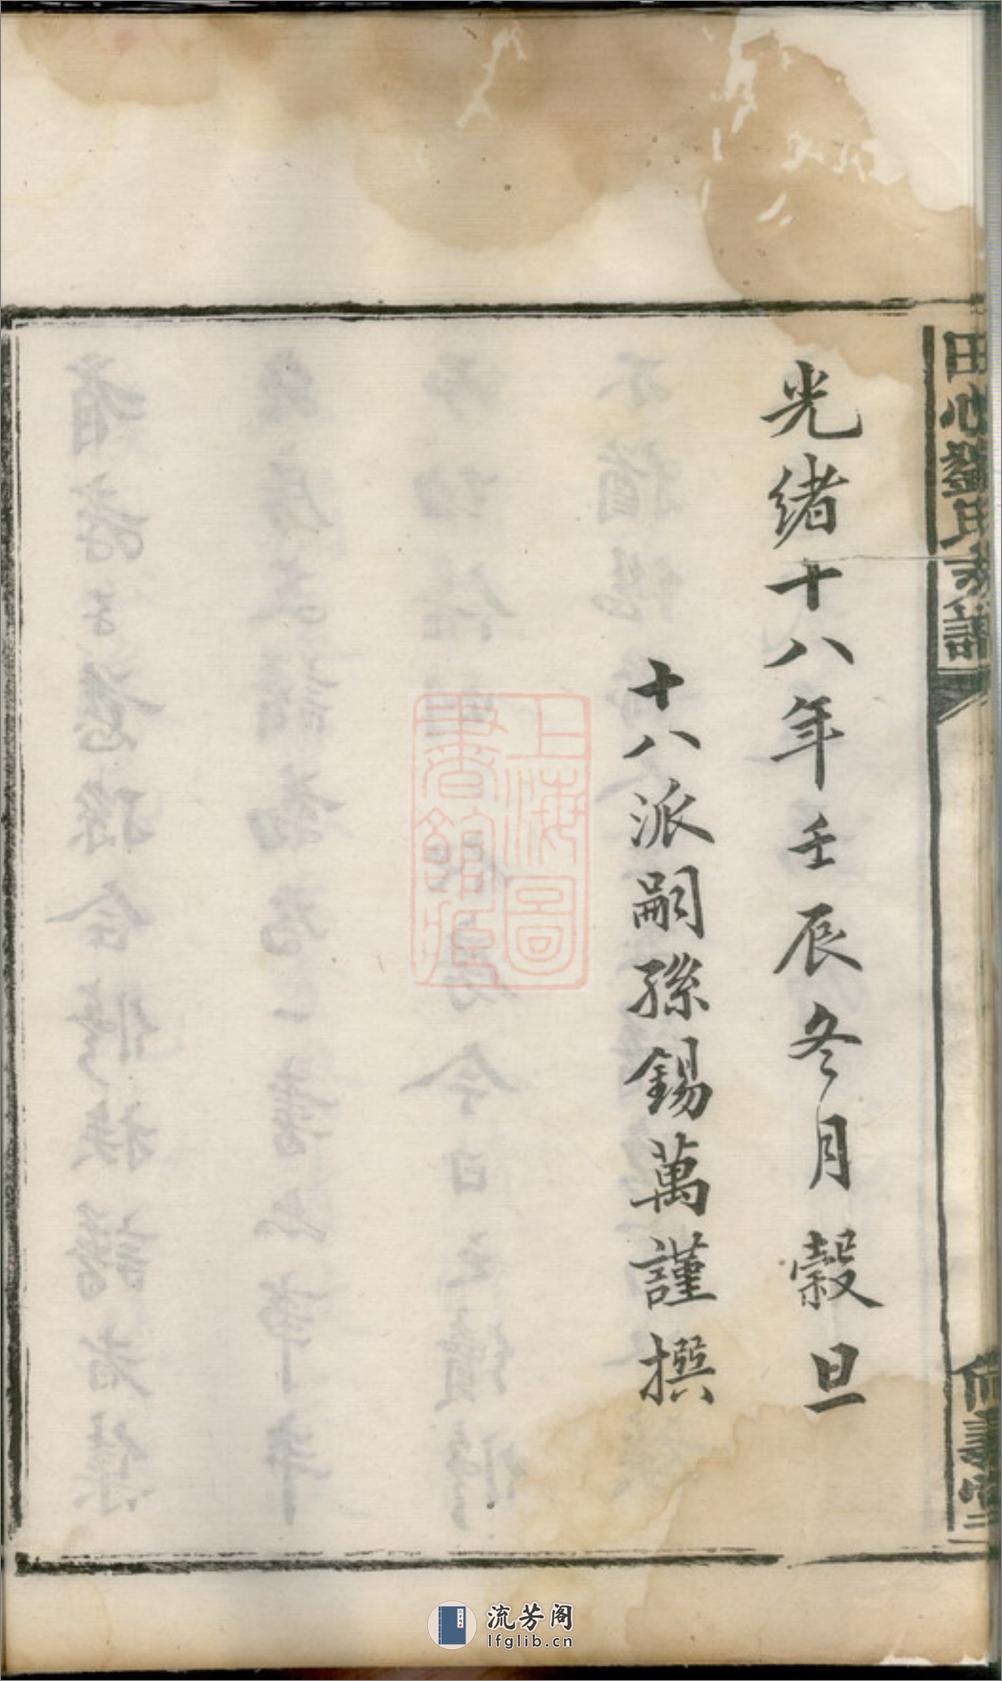 光緒十八年壬辰冬月穀旦
十八派嗣孫錫萬謹撰
田心劉氏族譜
上海圖
書館藏
流芳阁
lfglib.cn